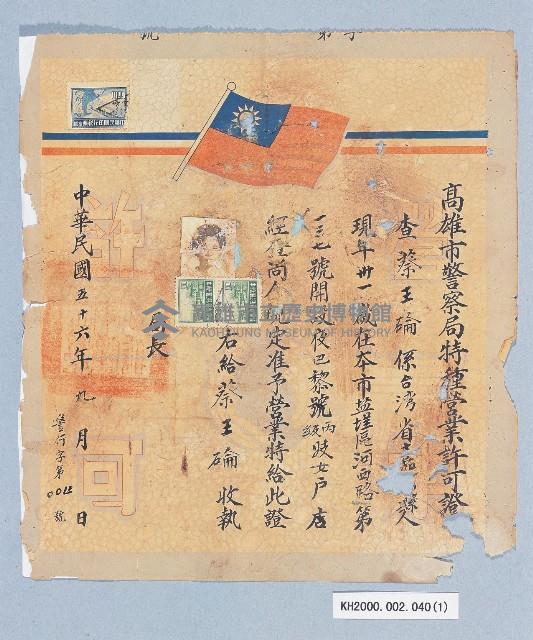 字第 號
高雄市警察局特種營業許可證
查蔡王碖係台湾省嘉 縣人
現年卅一歲在本市鹽埕區河西路第
一三七號開設夜巴黎號丙級妓女戶店
經 尚 定准予營業特給此證
右給蔡王碖收執
局長
中華民國五十六年九月 日
警行字第00 號
許可
高雄市立歷史博物館
KAOHSIUNG MUSEUM OF HISTORY
KH2000.002.040(1)